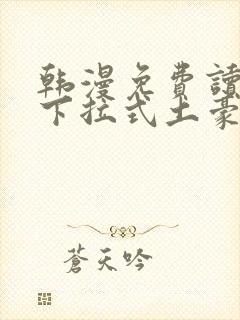 韩漫免費讀
下拉式土豪
蒼天吟